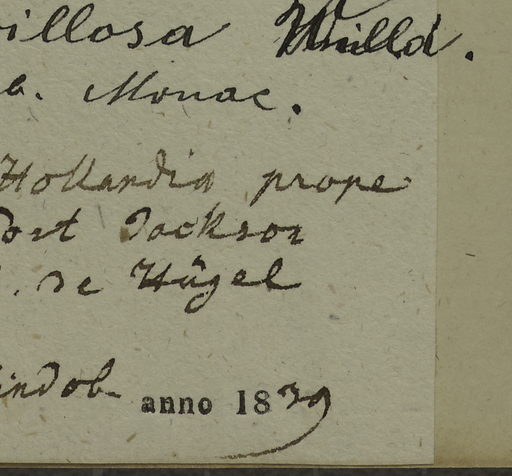 villosa Willd.
b. Monac.
Hollandia prope
Port Jackson
. de Hügel
indob
anno 1839